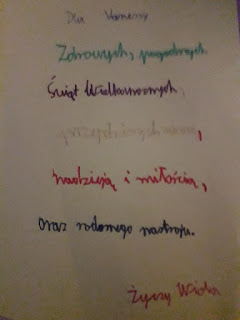 Dla Vanessy
Zdrowych, pogodnych
Świąt Wielkanocnych,
przepełnionych wiarą,
nadzieją i miłością,
oraz radosnego nastroju.
Życzy Wiola